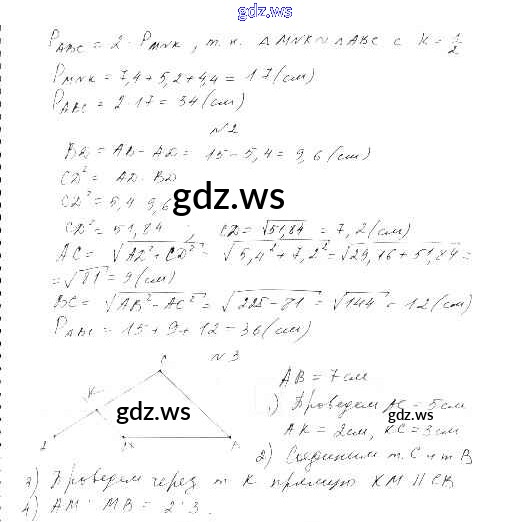 gdz.ws
P_ABC = 2 · P_MNK, т.к. △MNK ∾ △ABC с K = 1/2
P_MNK = 7,4 + 5,2 + 4,4 = 17 (см)
P_ABC = 2 · 17 = 34 (см)
№2
BD = AB - AD = 15 - 5,4 = 9,6 (см)
CD² = AD · BD
CD² = 5,4 · 9,6
gdz.ws
CD² = 51,84 ; CD = √51,84 = 7,2 (см)
AC = √AD² + CD² = √5,4² + 7,2² = √29,16 + 51,84 =
= √81 = 9 (см)
BC = √AB² - AC² = √225 - 81 = √144 = 12 (см)
P_ABC = 15 + 9 + 12 = 36 (см)
№3
C
K
A
M
B
gdz.ws
AB = 7 см
1) Проведем AC = 5 см
gdz.ws
AK = 2 см, KC = 3 см
2) Соединим т. C и т B
3) Проведем через т K прямую KM || CB
4) AM : MB = 2 : 3.